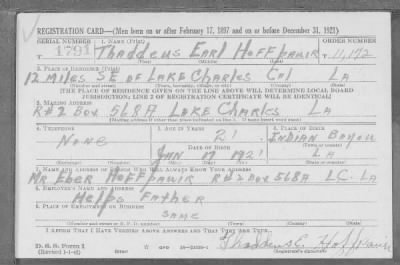 REGISTRATION CARD—(Men born on or after February 17, 1897 and on or before December 31, 1921)
SERIAL NUMBER 1. NAME (Print) ORDER NUMBER
1791 Thaddeus Earl Hoffpauir 11,172
(First) (Middle) (Last)
2. PLACE OF RESIDENCE (Print)
12 Miles SE of LAKE CharLes Cal LA
(Number and street) (Town, township, village, or city) (County) (State)
[THE PLACE OF RESIDENCE GIVEN ON THE LINE ABOVE WILL DETERMINE LOCAL BOARD
JURISDICTION; LINE 2 OF REGISTRATION CERTIFICATE WILL BE IDENTICAL]
3. MAILING ADDRESS
R#2 Box 568A LAKE CharLes LA
[Mailing address if other than place indicated on line 2. If same insert word same]
4. TELEPHONE 5. AGE IN YEARS 6. PLACE OF BIRTH
None 21 Indian Bayou
DATE OF BIRTH
JAN 17 1921 LA
(Exchange) (Number) (Mo.) (Day) (Yr.) (State or country)
7. NAME AND ADDRESS OF PERSON WHO WILL ALWAYS KNOW YOUR ADDRESS
Mr Eber Hoffpauir R#2 Box 568A L.C. LA
8. EMPLOYER'S NAME AND ADDRESS
Helps Father
9. PLACE OF EMPLOYMENT OR BUSINESS
same
(Number and street or R. F. D. number) (Town) (County) (State)
I AFFIRM THAT I HAVE VERIFIED ABOVE ANSWERS AND THAT THEY ARE TRUE.
D. S. S. Form 1
(Revised 1-1-42) Thaddeus E. Hoffpauir